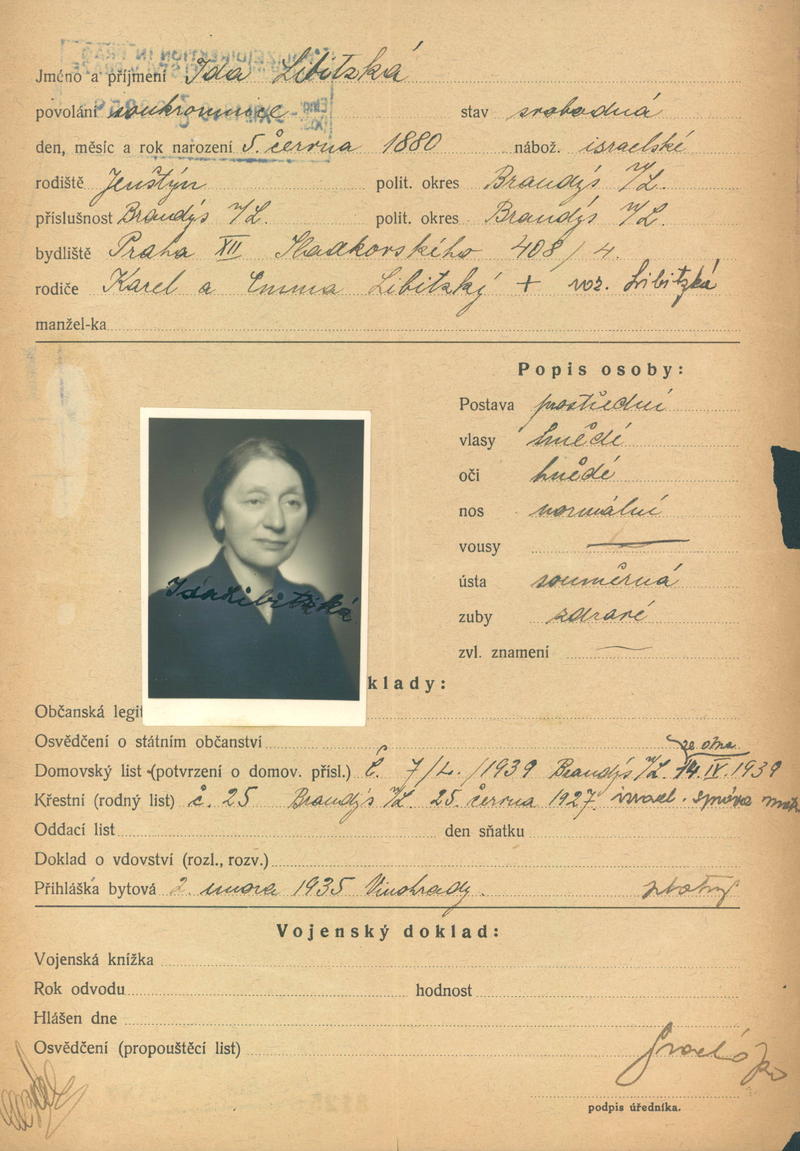 Jméno a příjmení Ida Libitzká
povolání soukromnice stav svobodná
den, měsíc a rok narození 5. června 1880 nábož. israelské
rodiště Jenštýn polit. okres Brandýs n/L.
příslušnost Brandýs n/L. polit. okres Brandýs n/L.
bydliště Praha XII Sladkovského 408/4.
rodiče Karel a Emma Libitzký + roz. Libitzká
manžel-ka
Popis osoby:
Postava prostřední
vlasy hnědé
oči hnědé
nos normální
vousy
ústa souměrná
zuby zdravé
zvl. znamení
Ida Libitzká
klady:
Občanská legit
Osvědčení o státním občanství
ze dne
Domovský list (potvrzení o domov. přísl.) č. 7/L./1939 Brandýs n/L. 14.IV.1939
Křestní (rodný list) č. 25 Brandýs n/L. 25. června 1927. israel. správa matr
Oddací list den sňatku
Doklad o vdovství (rozl., rozv.)
Přihláška bytová 2. února 1935 Vinohrady.
Vojenský doklad:
Vojenská knížka
Rok odvodu hodnost
Hlášen dne
Osvědčení (propouštěcí list)
podpis úředníka.